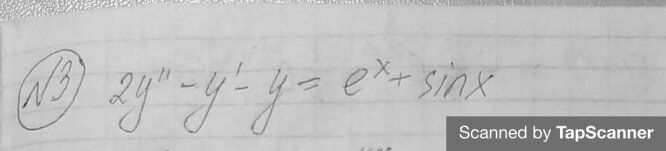 N3 2y'' - y' - y = e^x + sinx
Scanned by TapScanner